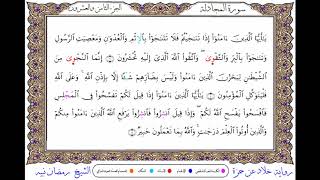 سورة المجادلة
الجزء الثامن والعشرون
يَٰٓأَيُّهَا ٱلَّذِينَ ءَامَنُوٓا۟ إِذَا تَنَٰجَيْتُمْ فَلَا تَتَنَٰجَوْا۟ بِٱلْإِثْمِ وَٱلْعُدْوَٰنِ وَمَعْصِيَتِ ٱلرَّسُولِ
وَتَنَٰجَوْا۟ بِٱلْبِرِّ وَٱلتَّقْوَىٰ وَٱتَّقُوا۟ ٱللَّهَ ٱلَّذِىٓ إِلَيْهِ تُحْشَرُونَ ۝ إِنَّمَا ٱلنَّجْوَىٰ مِنَ
ٱلشَّيْطَٰنِ لِيَحْزُنَ ٱلَّذِينَ ءَامَنُوا۟ وَلَيْسَ بِضَآرِّهِمْ شَيْـًٔا إِلَّا بِإِذْنِ ٱللَّهِ وَعَلَى ٱللَّهِ
فَلْيَتَوَكَّلِ ٱلْمُؤْمِنُونَ ۝ يَٰٓأَيُّهَا ٱلَّذِينَ ءَامَنُوٓا۟ إِذَا قِيلَ لَكُمْ تَفَسَّحُوا۟ فِى ٱلْمَجْلِسِ
فَٱفْسَحُوا۟ يَفْسَحِ ٱللَّهُ لَكُمْ وَإِذَا قِيلَ ٱنشِزُوا۟ فَٱنشِزُوا۟ يَرْفَعِ ٱللَّهُ ٱلَّذِينَ ءَامَنُوا۟ مِنكُمْ
وَٱلَّذِينَ أُوتُوا۟ ٱلْعِلْمَ دَرَجَٰتٍ وَٱللَّهُ بِمَا تَعْمَلُونَ خَبِيرٌ ۝
رواية خلاد عن حمزة
الشيخ رمضان